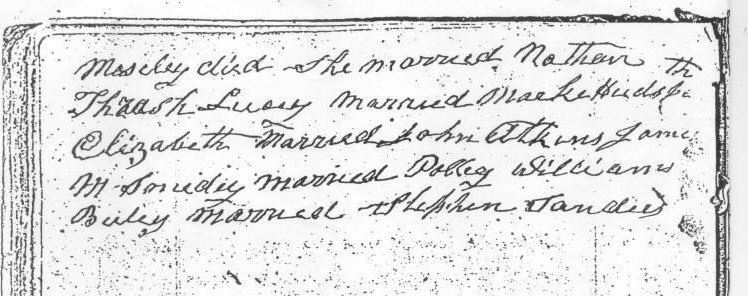 Moseley died She married Nathan th
Thrash Lucey Married Marke Hudso
Elizabeth Married John Atkins Jame
M Smedey married Polley Williams
Buley Married Stephen Sandies